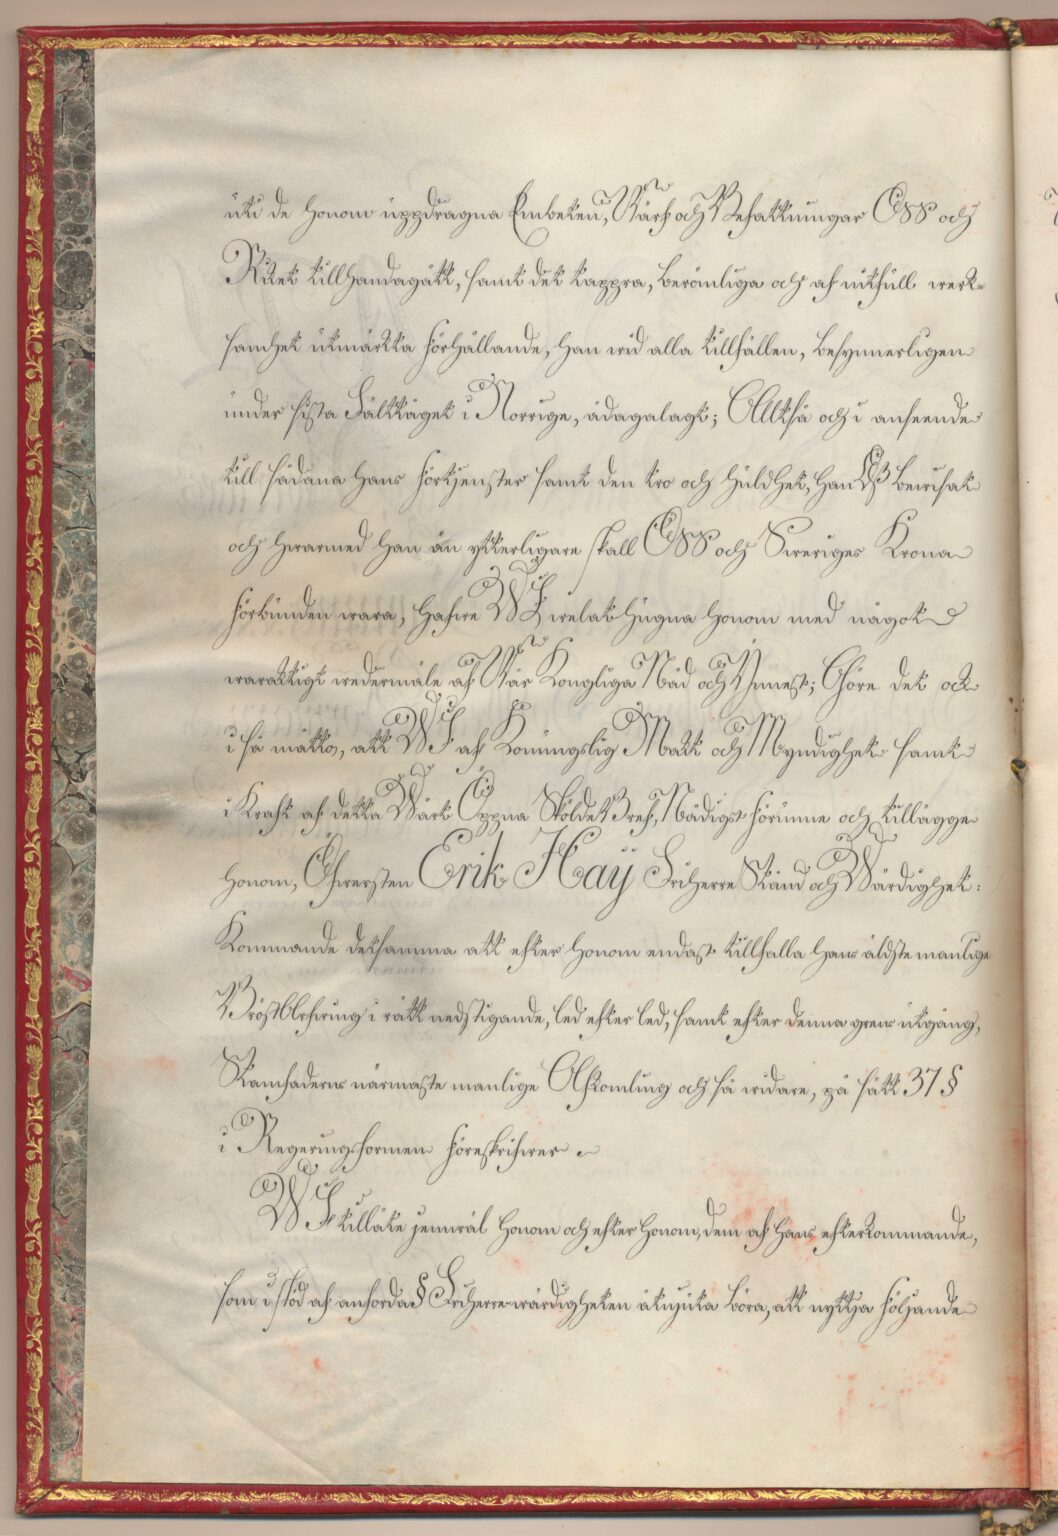 uti de honom uppdragna Embeten, Wärf och Befattningar Oss och
Riket tillhandagått, samt det tappra, berömliga och af nitfull werk-
samhet utmärkta förhållande, han wid alla tillfällen, besynnerligen
under sista Fälttåget i Norrige, ådagalagt; Alltså och i anseende
till sådana hans förtjenster samt den tro och huldhet, han Oß bewisat
och hwarmed han än ytterligare skall Oss och Sweriges Krona
förbunden wara, hafwe Wi welat hugna honom med något
waraktigt wedermäle af Wår Kongliga Nåd och Ynnest; Göre det ock
i så måtto, att Wi af Konungslig Makt och Myndighet samt
i Kraft af detta Wårt Öppna Sköldebref, Nådigst förunne och tillägge
honom, Öfwersten Erik Haij Friherre Stånd och Wärdighet:
Kommande detsamma att efter honom endast tillfalla hans äldste manlige
Bröst Arfwing i rätt nedstigande, led efter led, samt efter denna grens utgång,
Stamfaderns närmaste manlige Afkomling och så widare, på sätt 37 §
i Regeringsformen föreskrifwer
Wi tillåte jemwäl honom och efter honom, dem af hans efterkommande,
som i stöd af anförda § Friherrewärdigheten åtnjuta böra, att nyttja följande